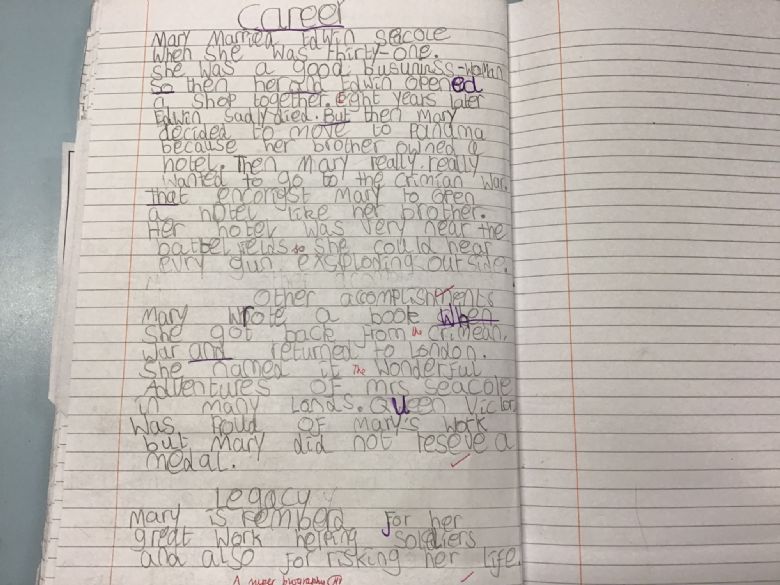 Career
Mary Married Edwin Seacole
when she was thirty-one.
she was a good busuniss-woman
so then her and Edwin opened
a shop together. eight years later
Edwin sadly died. But then Mary
decided to move to panama
because her brother owned a
hotel. Then Mary really really
wanted to go to the crimian war.
that encorigst Mary to open
a hotel like her brother.
Her hotel was very near the
battel feilds so she could hear
evry gun exsploding outside.
Other accomplishments
Mary wrote a book when
She got back from the Crimean,
war and returned to London.
She named it The Wonderful
Adventures OF mrs Seacole
in many Lands. Queen Victor
was Proud OF Mary's work
but Mary did not reseve a
medal.
Legacy
Mary is rememberd for her
great work helping soldiers
and also for risking her life.
A super biography